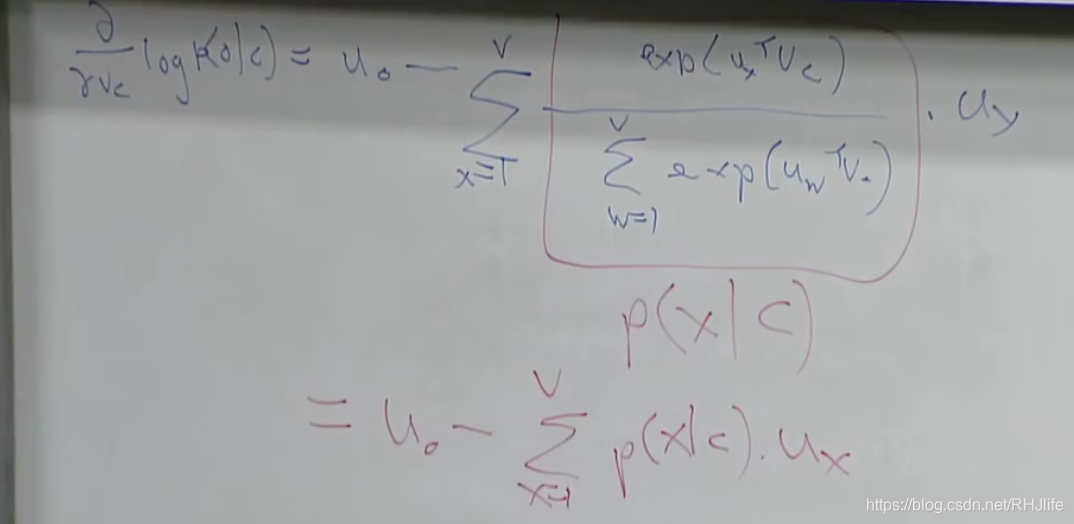 ∂/∂v_c log p(o|c) = u_o − Σ_{x=1}^{V} exp(u_x^T v_c) / Σ_{w=1}^{V} exp(u_w^T v_c) · u_x
p(x|c)
= u_o − Σ_{x=1}^{V} p(x|c) · u_x
https://blog.csdn.net/RHJlife